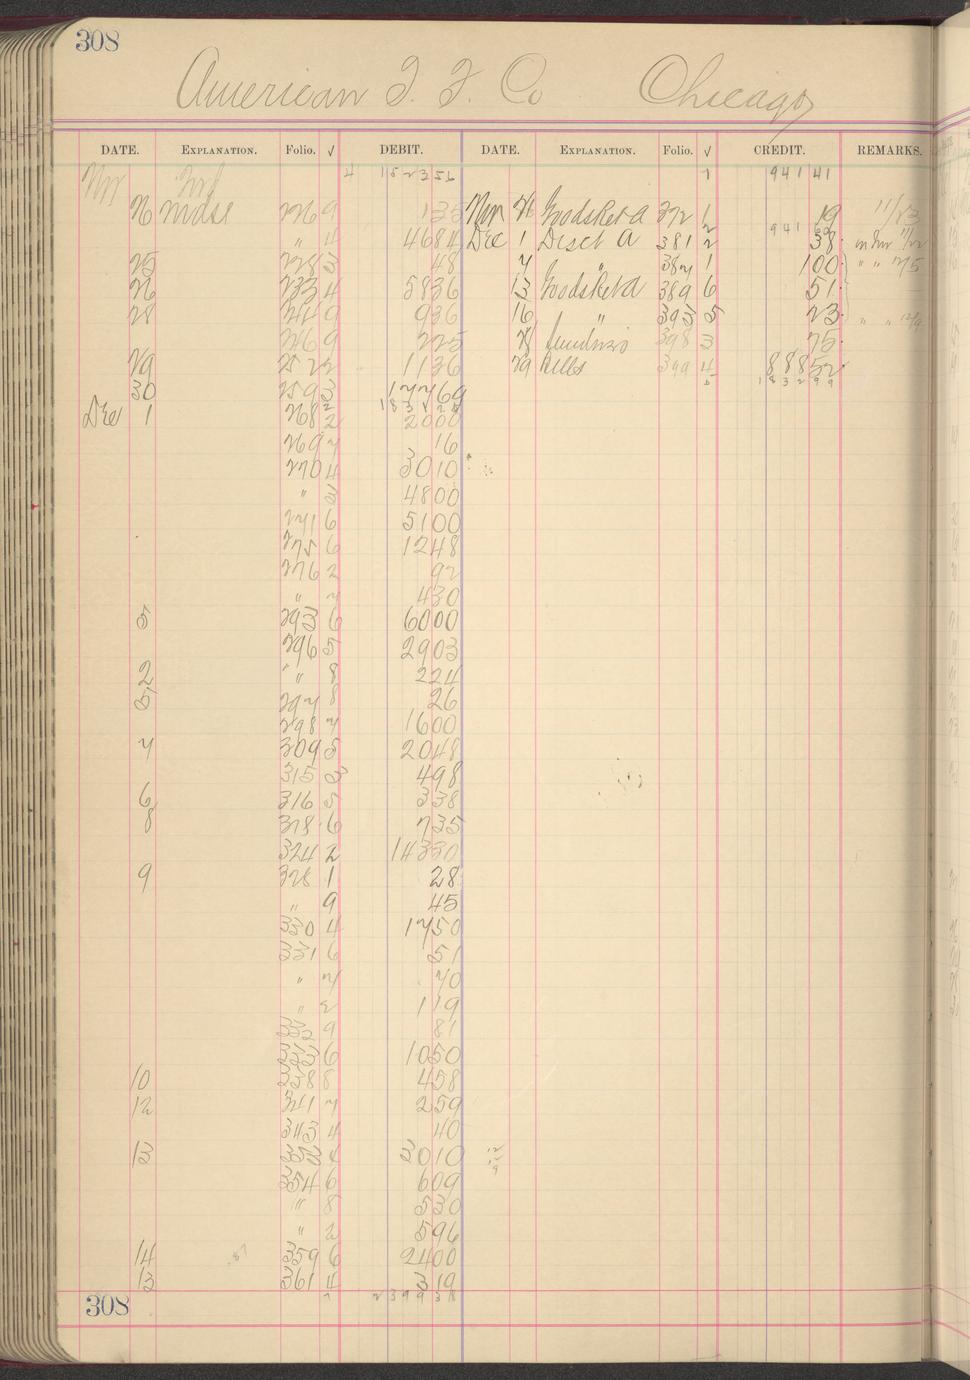 308
American T. F. Co Chicago
DATE. EXPLANATION. Folio. √ DEBIT. DATE. EXPLANATION. Folio. √ CREDIT. REMARKS.
Nov Fwd 4 152356 1 94141
26 Mdse 226 9 135 Nov 26 Goods Ret a 372 1 19 11/23
" 4 4684 Dec 1 Disct a 381 2 38
25 228 3 48 7 " 387 1 100 " " 2/5
26 233 4 5836 13 Goods Ret a 389 6 51
28 241 9 936 16 " 393 5 23 " "
246 9 225 21 Sundries 398 3 75
29 252 2 1136 29 Bills 399 4 88852
30 259 3 17769
Dec 1 268 2 2000
269 7 16
270 4 3010
" 3 4800
271 6 5100
275 6 1248
276 2 92
" 7 430
5 293 6 6000
296 5 2903
2 " 8 224
5 297 8 26
298 7 1600
7 309 5 2048
315 3 498
6 316 5 338
8 318 6 735
324 2 14330
9 328 1 28
" 9 45
330 4 1750
331 6 51
" 7 70
" 2 119
332 9 81
333 6 1050
10 338 8 458
12 341 7 259
343 4 40
13 352 4 3010
354 6 609
" 8 530
" 2 596
14 359 6 2400
13 361 4 319
308 239938